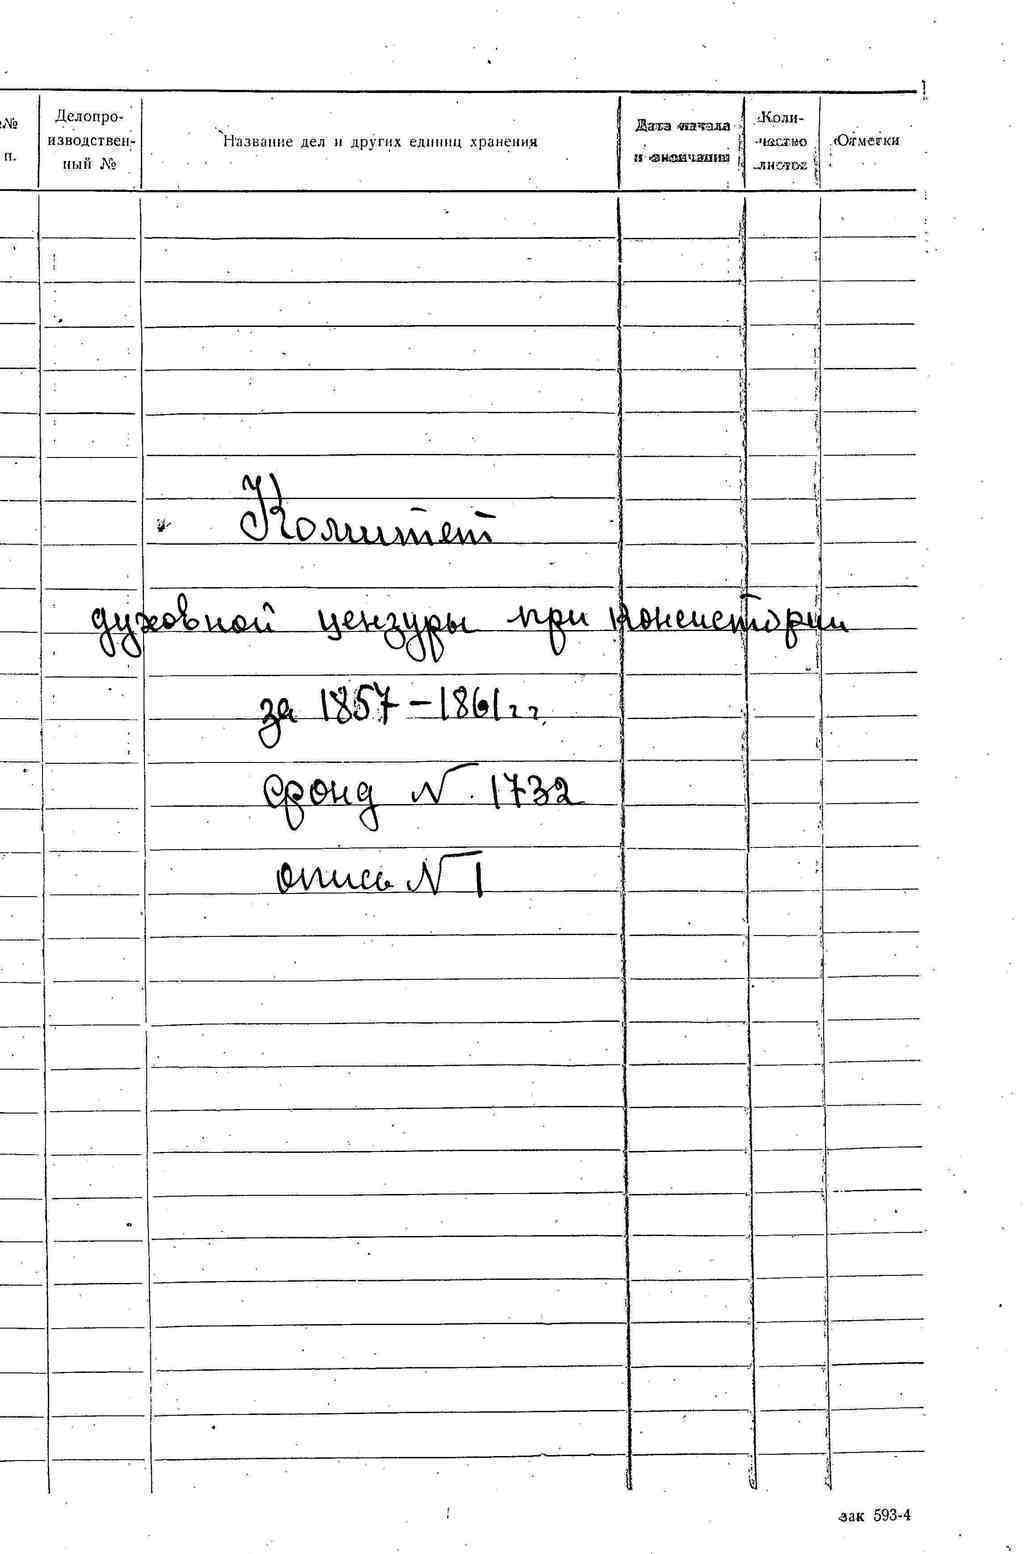 №№ п.
Делопро-
изводствен-
ный №
Название дел и других единиц хранения
Дата начала
и окончания
Коли-
чество
листов
Отметки
Комитет
духовной цензуры при консистории
за 1857-1861 г г.
фонд N. 1732
опись N 1
зак 593-4